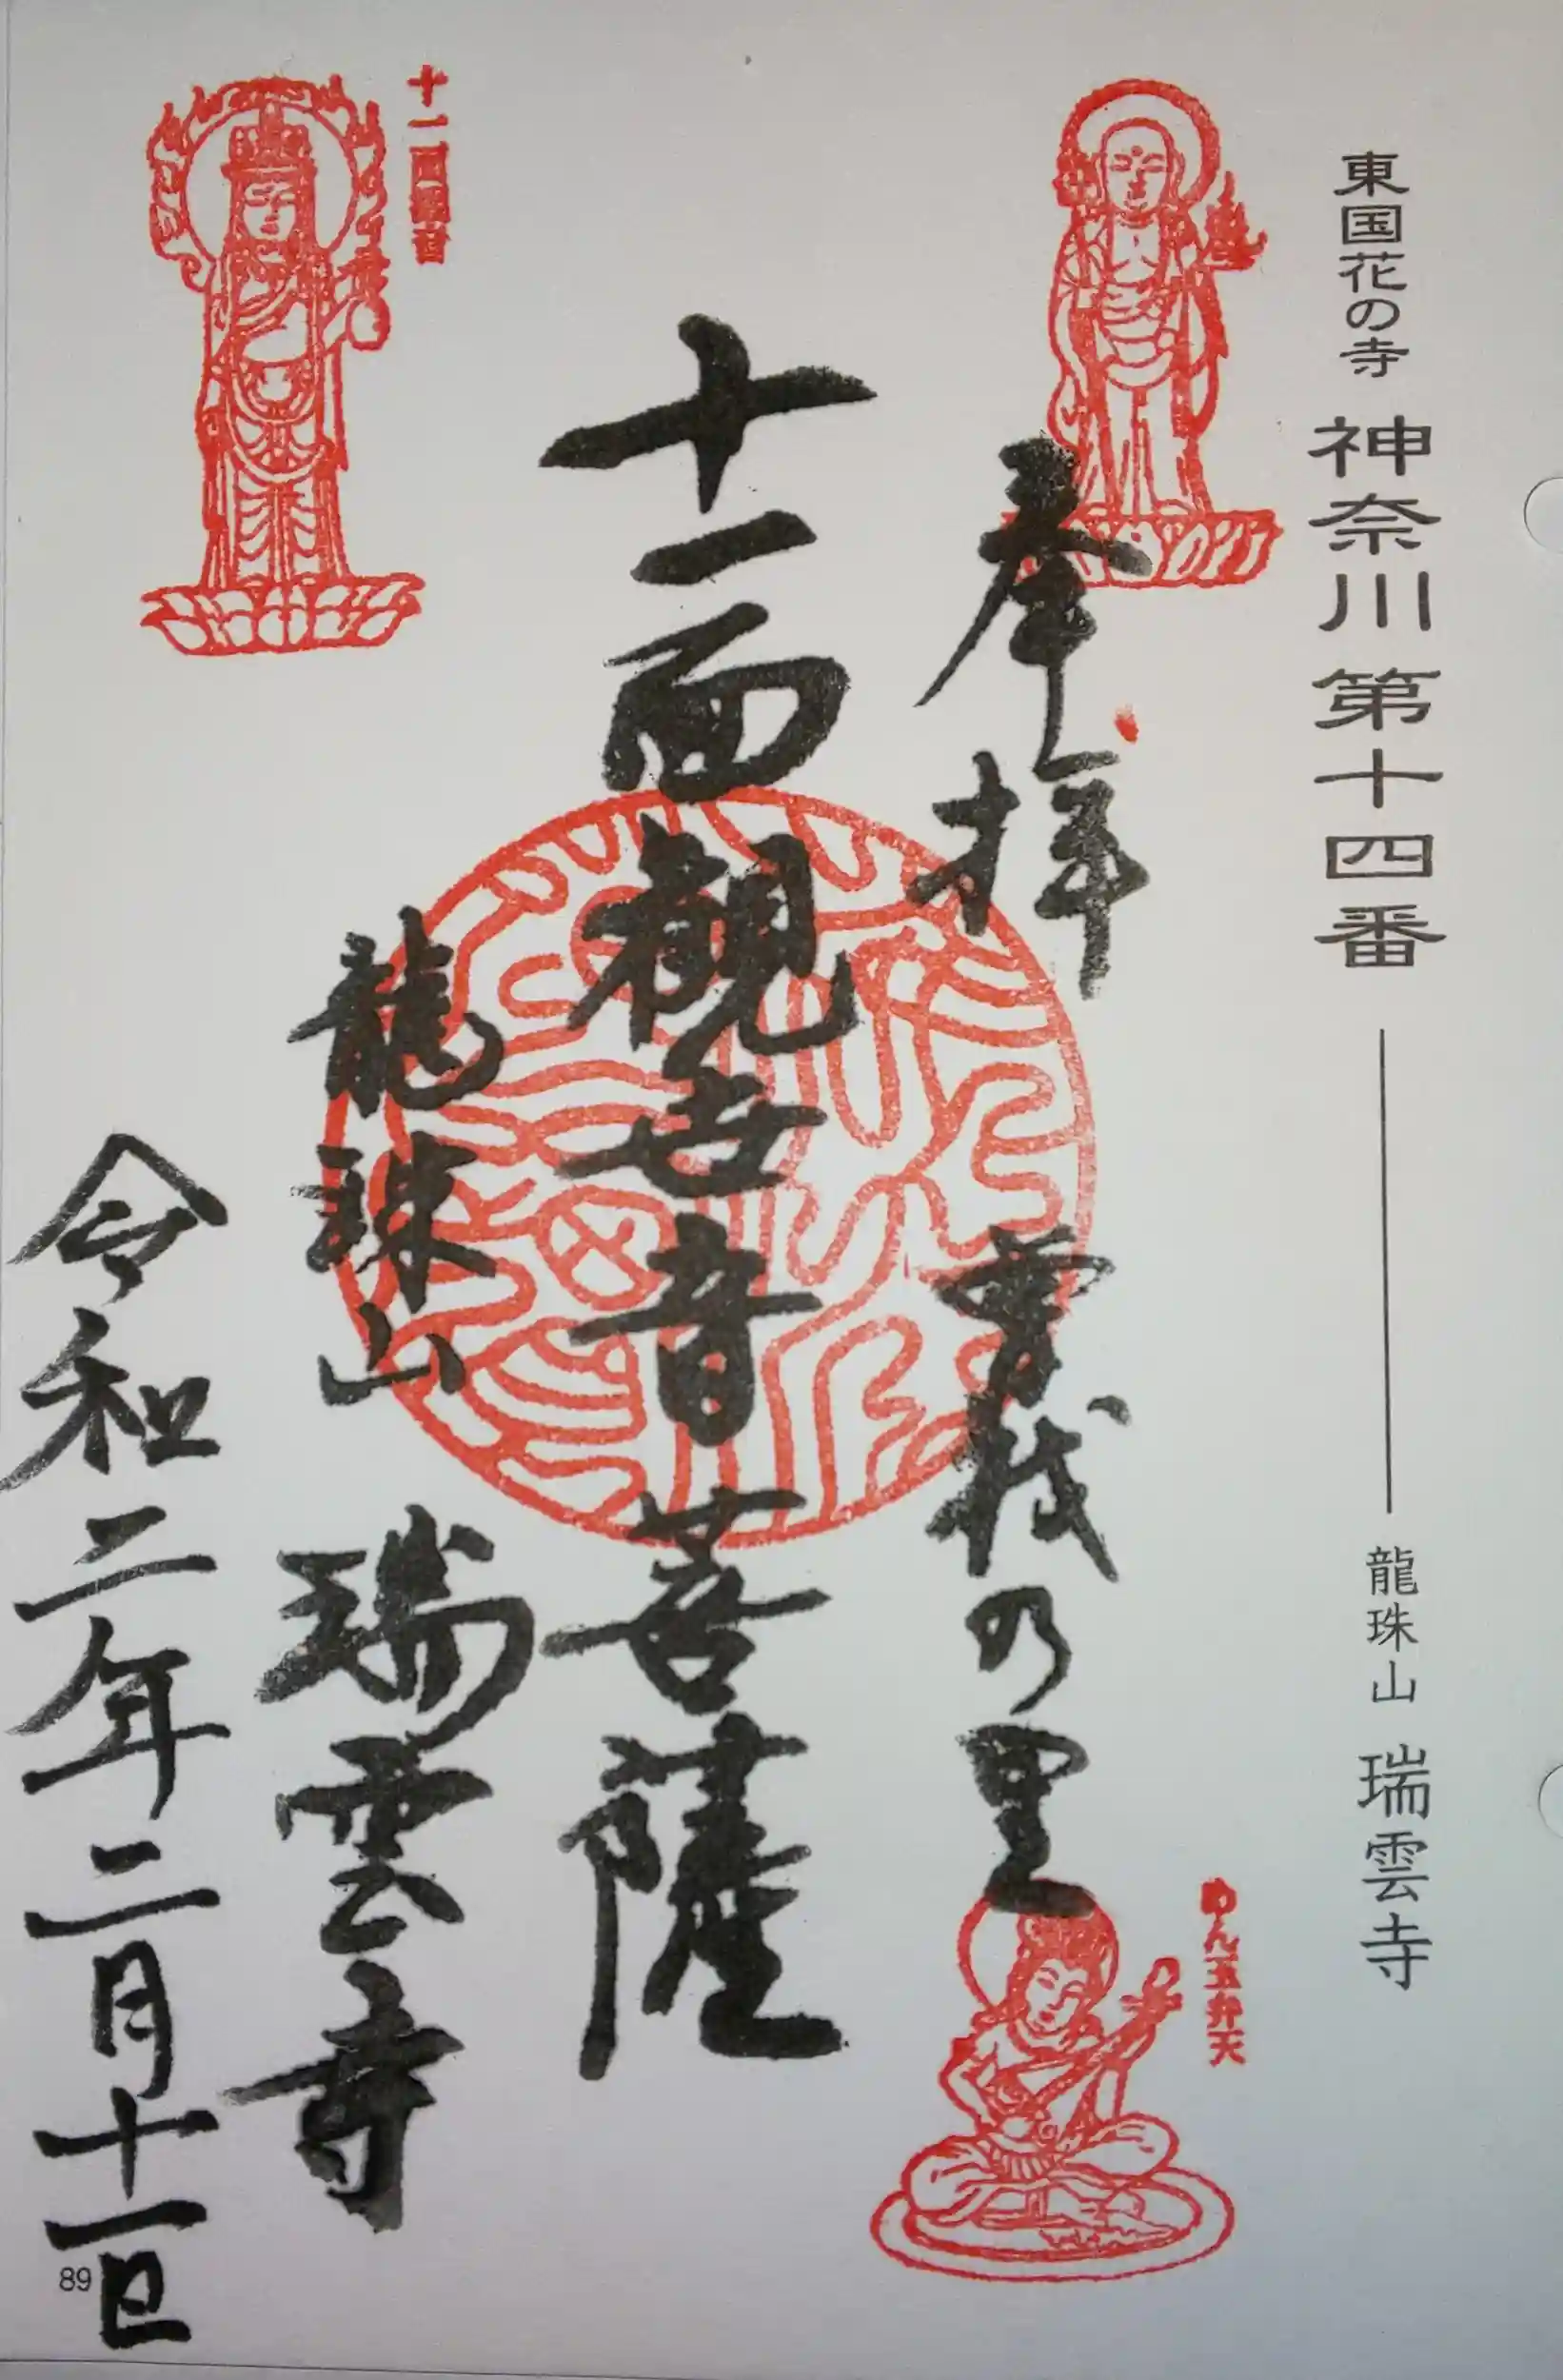 東国花の寺 神奈川第十四番 龍珠山 瑞雲寺
奉拝 曽我の里
めん玉弁天
十一面観世音菩薩
十一面観音
龍珠山 瑞雲寺
令和二年二月十一日
89